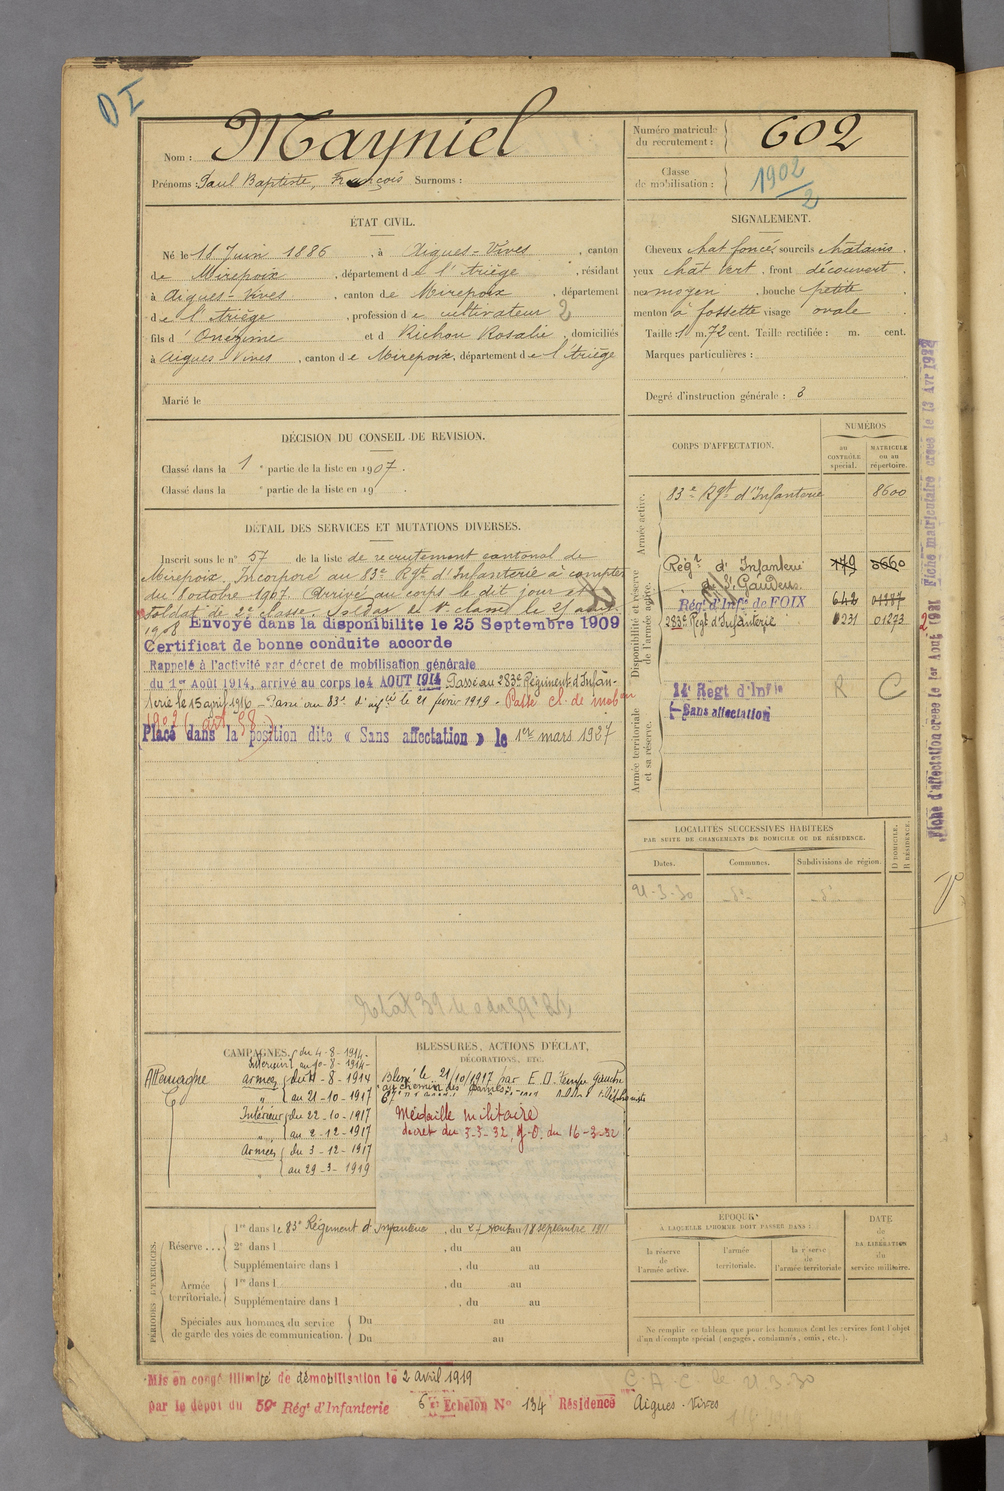 DI
Nom : Mayniel
Prénoms : Paul Baptiste, François Surnoms :
Numéro matricule du recrutement : 602
Classe de mobilisation : 1902/2
ÉTAT CIVIL.
Né le 18 Juin 1886, à Aigues-Vives, canton
de Mirepoix, département de l'Ariège, résidant
à Aigues-Vives, canton de Mirepoix, département
de l'Ariège, profession de cultivateur 2
fils d'Onézime et d Richou Rosalie, domiciliés
à Aigues-Vives, canton de Mirepoix, département de l'Ariège
Marié le
SIGNALEMENT.
Cheveux chat foncé, sourcils châtains.
yeux chât vert, front découvert,
nez moyen, bouche petite
menton à fossette visage ovale
Taille 1 m. 72 cent. Taille rectifiée : m. cent.
Marques particulières :
Degré d'instruction générale : 3
DÉCISION DU CONSEIL DE REVISION.
Classé dans la 1 e partie de la liste en 1907.
Classé dans la e partie de la liste en 19
DÉTAIL DES SERVICES ET MUTATIONS DIVERSES.
Inscrit sous le n° 57 de la liste de recrutement cantonal de
Mirepoix. Incorporé au 83e Rgt d'Infanterie à compter
du 8 octobre 1907. Arrivé au corps le dit jour et
soldat de 2e classe. Soldat de 1re classe le 25
1908 Envoyé dans la disponibilite le 25 Septembre 1909
Certificat de bonne conduite accorde
Rappelé à l'activité par décret de mobilisation générale
du 1er Août 1914, arrivé au corps le 4 AOUT 1914 Passé au 283e Régiment d'Infan-
terie le 15 avril 1916 - Passé au 83e d'infie le 21 févr 1919 - Passé cl. de mobon
1902 (art 58)
Placé dans la position dite « Sans affectation » le 1er mars 1937
CORPS D'AFFECTATION.
NUMÉROS
au CONTRÔLE spécial.
MATRICULE ou au répertoire.
Armée active.
83e Rgt d'Infanterie 8600
Disponibilité et réserve de l'armée active.
Régt d'Infanterie 179 3660
de St Gaudens
Rég. d'Infie de FOIX 642 01187
283e Régt d'Infanterie 0231 01273
Armée territoriale et sa réserve.
14e Regt d'Infie R C
Sans affectation
Fiche d'affectation créée le 1er Août 1921 Fiche matriculaire créée le 13 Avr 1922
LOCALITÉS SUCCESSIVES HABITÉES
PAR SUITE DE CHANGEMENTS DE DOMICILE OU DE RÉSIDENCE.
Dates. Communes. Subdivisions de région. D DOMICILE. R RÉSIDENCE.
21-3-30 do do
CAMPAGNES.
Allemagne
Intérieur du 4-8-1914-
au 10-8-1914-
armées du 11-8-1914
" au 21-10-1917
Intérieur du 22-10-1917
" au 2-12-1917
Armées du 3-12-1917
" au 29-3-1919
BLESSURES, ACTIONS D'ÉCLAT,
DÉCORATIONS, ETC.
Blessé le 21/10/1917 par E. O. tempe gauche
au chemin des Dames
Médaille militaire
décret du 3-3-32, J.O. du 16-3-32
PÉRIODES D'EXERCICES.
Réserve ... 1re dans le 83e Régiment d'Infanterie, du 27 Août au 18 septembre 1911
2e dans l , du au
Supplémentaire dans l , du au
Armée territoriale. 1re dans l , du au
Supplémentaire dans l , du au
Spéciales aux hommes du service de garde des voies de communication. Du au
Du au
ÉPOQUE
À LAQUELLE L'HOMME DOIT PASSER DANS :
la réserve de l'armée active.
l'armée territoriale.
la réserve de l'armée territoriale
DATE de LA LIBÉRATION du service militaire.
Ne remplir ce tableau que pour les hommes dont les services font l'objet
d'un décompte spécial (engagés, condamnés, omis, etc.).
Mis en congé illimité de démobilisation le 2 avril 1919
par le dépot du 59e Régt d'Infanterie 6e Echelon N° 134 Résidence Aigues-Vives
C.A.C. le 21.3.30